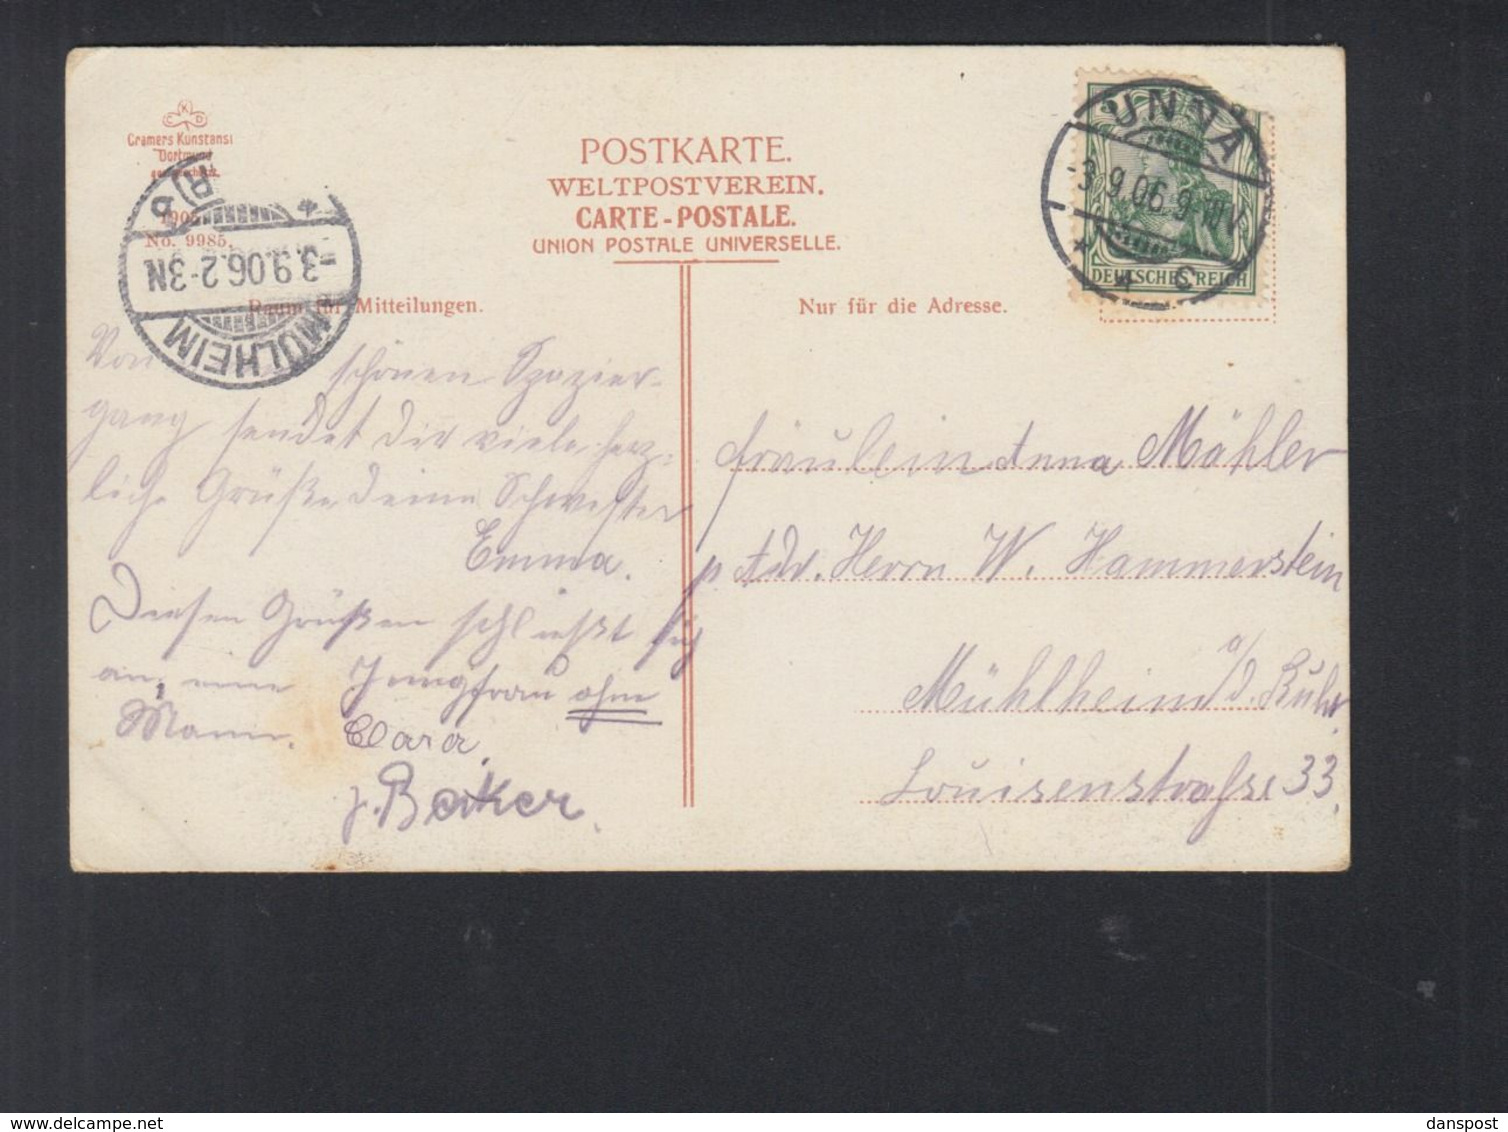 K
C D
Cramers Kunstanst
Dortmund
1905
No. 9985.
POSTKARTE.
WELTPOSTVEREIN.
CARTE-POSTALE.
UNION POSTALE UNIVERSELLE.
5
DEUTSCHES REICH
UNNA
-3.9.06.9-10V.
* c
MÜLHEIM
-3.9.06.2-3N
(R) b
Raum für Mitteilungen.
Nur für die Adresse.
Von schönen Spazier-
gang sendet dir viele herz-
liche Grüße deine Schwester
Emma.
Diesen Grüßen schließt sich
an, eine Jungfrau ohne
Mann. Clara
Becker.
Fräulein Anna Mähler
p. Adr. Herrn W. Hammerstein
Mühlheim a/d. Ruhr
Louisenstraße 33.
danspost